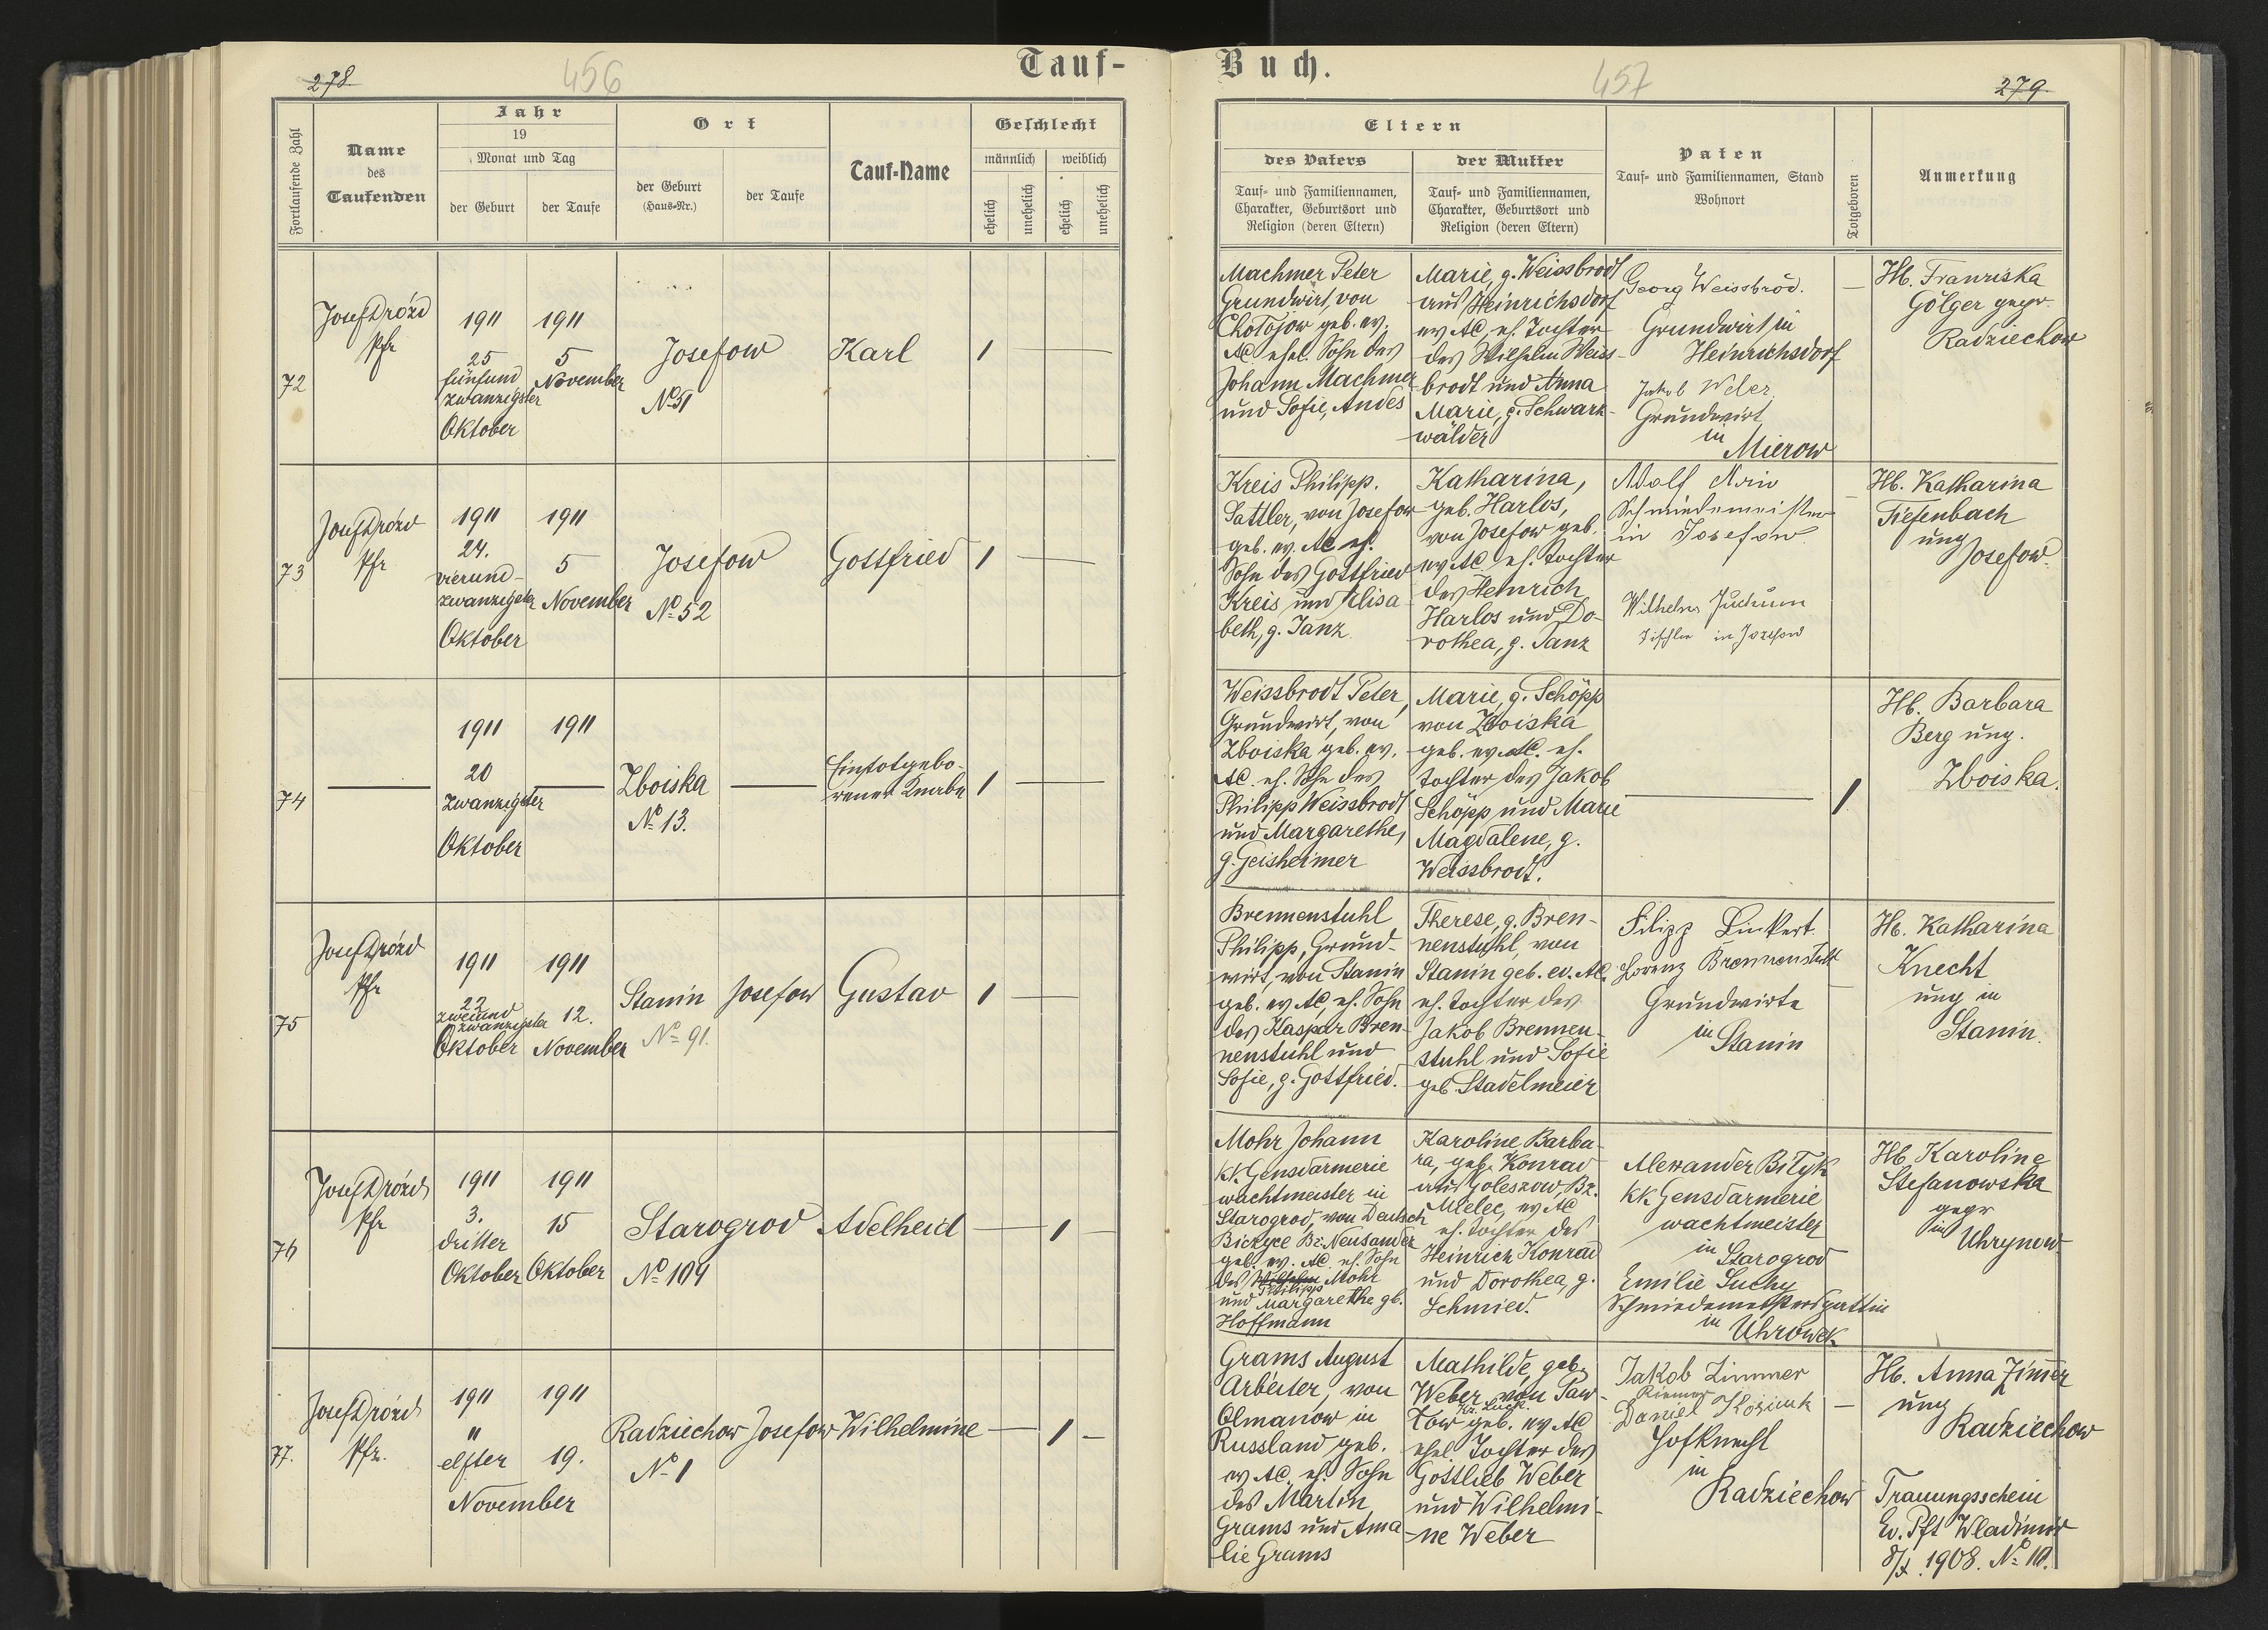 278
456
Tauf-
Fortlaufende Zahl
Name
des
Taufenden
Jahr
19
Monat und Tag
der Geburt
der Taufe
Ort
der Geburt
(Haus-Nr.)
der Taufe
Tauf-Name
Geschlecht
männlich
weiblich
ehelich
unehelich
ehelich
unehelich
72
Josef Drózd
Pfr
1911
25
fünfund
zwanzigster
Oktober
1911
5
November
Josefow
No 51
Karl
1
73
Josef Drózd
Pfr
1911
24.
vierund-
zwanzigster
Oktober
1911
5
November
Josefow
No 52
Gottfried
1
74
1911
20
zwanzigster
Oktober
1911
Zboiska
No 13.
Ein totgebo-
rener Knabe
1
75
Josef Drózd
Pfr
1911
22
zweiund
zwanzigster
Oktober
1911
12.
November
Stanin
No 91.
Josefow
Gustav
1
76
Josef Drózd
Pfr
1911
3.
dritter
Oktober
1911
15
Oktober
Starogrod
No 104
Adelheid
1
77.
Josef Drózd
Pfr.
1911
11
elfter
November
1911
19.
Radziechow
No 1
Josefow
Wilhelmine
1
Buch.
457
279
Eltern
des Vaters
Tauf- und Familiennamen,
Charakter, Geburtsort und
Religion (deren Eltern)
der Mutter
Tauf- und Familiennamen,
Charakter, Geburtsort und
Religion (deren Eltern)
Paten
Tauf- und Familiennamen, Stand
Wohnort
Totgeboren
Anmerkung
Machmer Peter
Grundwirt, von
Chołojow geb. ev.
AC ehel. Sohn des
Johann Machmer
und Sofie, Andes
Marie, g. Weissbrodt
aus Heinrichsdorf
ev AC, eh. Tochter
des Wilhelm Weiss-
brodt und Anna
Marie, g. Schwarz-
wälder
Georg Weissbrod.
Grundwirt in
Heinrichsdorf
Jakob Weber
Grundwirt
in
Mierow
Hb. Franziska
Gölger gepr.
Radziechow
Kreis Philipp.
Sattler, von Josefow
geb. ev. AC eh.
Sohn des Gottfried
Kreis und Elisa
beth, g. Tanz
Katharina,
geb. Harlos,
von Josefow geb.
ev AC eh. Tochter
des Heinrich
Harlos und Do-
rothea, g. Tanz
Adolf
Schmiedemeister
in Josefow
Wilhelm
Tischler in Josefow
Hb. Katharina
Tiefenbach
ung
Josefow.
Weissbrodt Peter,
Grundwirt, von
Zboiska geb. ev.
AC. eh. Sohn des
Philipp Weissbrodt
und Margarethe,
g. Geisheimer
Marie, g. Schöpp
von Zboiska
geb. ev. AC. eh.
Tochter des Jakob
Schöpp und Marie
Magdalene, g.
Weissbrodt.
1
Hb. Barbara
Berg ung.
Zboiska.
Brennenstuhl
Philipp, Grund-
wirt, von Stanin
geb. ev AC, eh. Sohn
des Kaspar Bren-
nenstuhl und
Sofie, g. Gottfried.
Therese, g. Bren-
nenstuhl, von
Stanin geb. ev. AC.
eh. Tochter des
Jakob Brennen-
stuhl und Sofie
geb. Stadelmeier
Filipp Linkert
Lorenz Brennenstuhl
Grundwirte
in
Stanin
Hb. Katharina
Knecht
ung in
Stanin.
Mohr Johann
kk. Gensdarmerie
wachtmeister in
Starogrod, von Deutsch
Bickyce Bz. Neusander
geb. ev. AC, eh. Sohn
des Wilhelm Mohr
Philipp
und Margarethe gb.
Hoffmann
Karoline Barba-
ra, geb. Konrad
aus Goleszow, Bz.
Mielec, ev AC
eh. Tochter des
Heinrich Konrad
und Dorothea, g.
Schmied.
Alexander Bityk
kk Gensdarmerie
wachtmeister
in
Starogrod
Emilie Suchy
Schmiedemeistersgattin
in
Uhrowek
Hb. Karoline
Stefanowska
gepr
in
Uhrynow
Grams August
Arbeiter, von
Olmanow in
Russland geb.
ev AC. eh. Sohn
des Martin
Grams und Ama
lie Grams
Mathilde, geb.
Weber, von Paw-
Kr. Luck
low geb. ev AC
ehel. Tochter des
Gottlieb Weber
und Wilhelmi-
ne Weber
Jakob Zimmer
Riemer
Daniel
Hofknecht
in
Radziechow
Hb. Anna Zimmer
ung
Radziechow
Trauungsschein
Ev. Pft Wladimir
8/X. 1908. No 10.